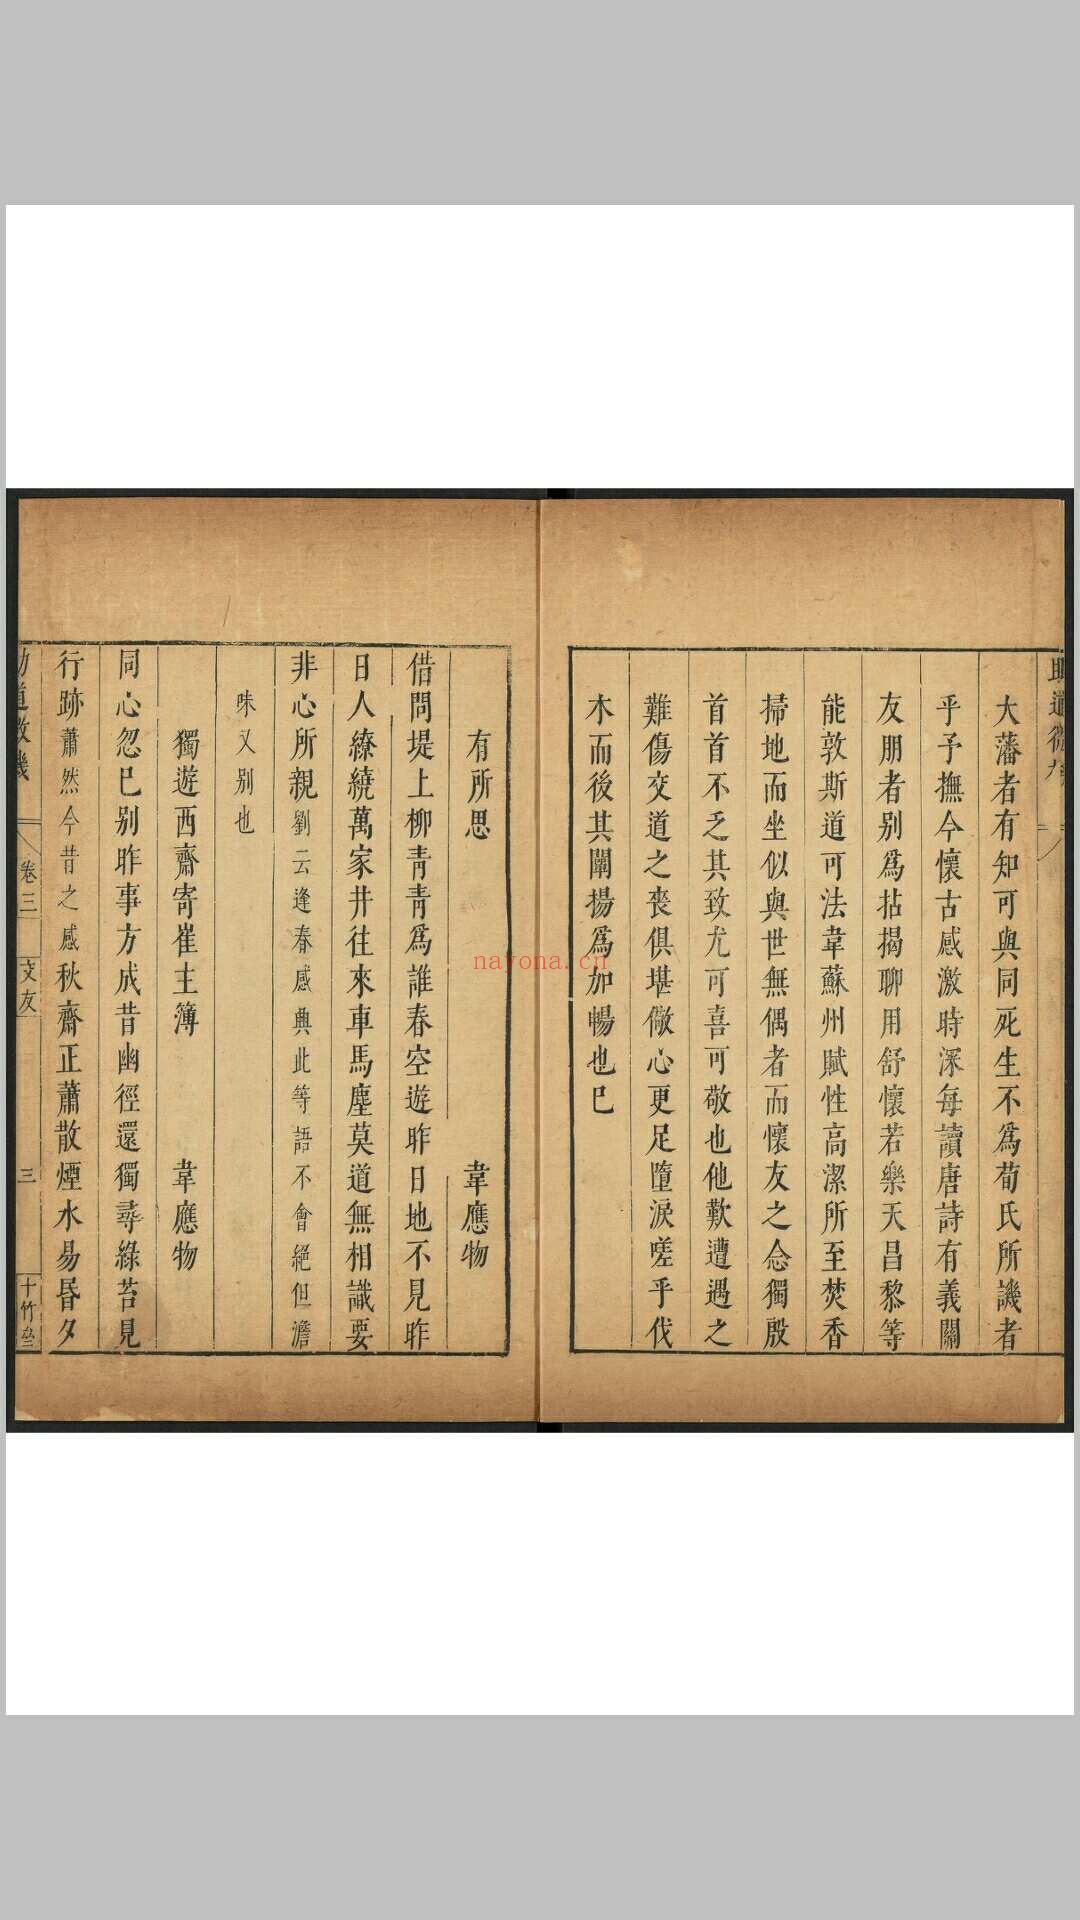 大藩者有知可與同死生不爲荀氏所譏者
乎予撫今懷古感激時深每讀唐詩有義關
友朋者別爲拈揭聊用舒懷若樂天昌黎等
能敦斯道可法韋蘇州賦性高潔所至焚香
掃地而坐似與世無偶者而懷友之念獨殷
首首不乏其致尤可喜可敬也他歎遭遇之
難傷交道之喪俱堪儆心更足墮淚嗟乎伐
木而後其闡揚爲加暢也已
有所思 韋應物
借問堤上柳靑靑爲誰春空遊昨日地不見昨
日人繚繞萬家井往來車馬塵莫道無相識要
非心所親劉云逢春感典此等語不會絕但澹
味又别也
獨遊西齋寄崔主簿 韋應物
同心忽已别昨事方成昔幽徑還獨尋綠苔見
行跡蕭然今昔之感秋齋正蕭散煙水易昏夕
卷三 交友 三 十竹
nayona.cn